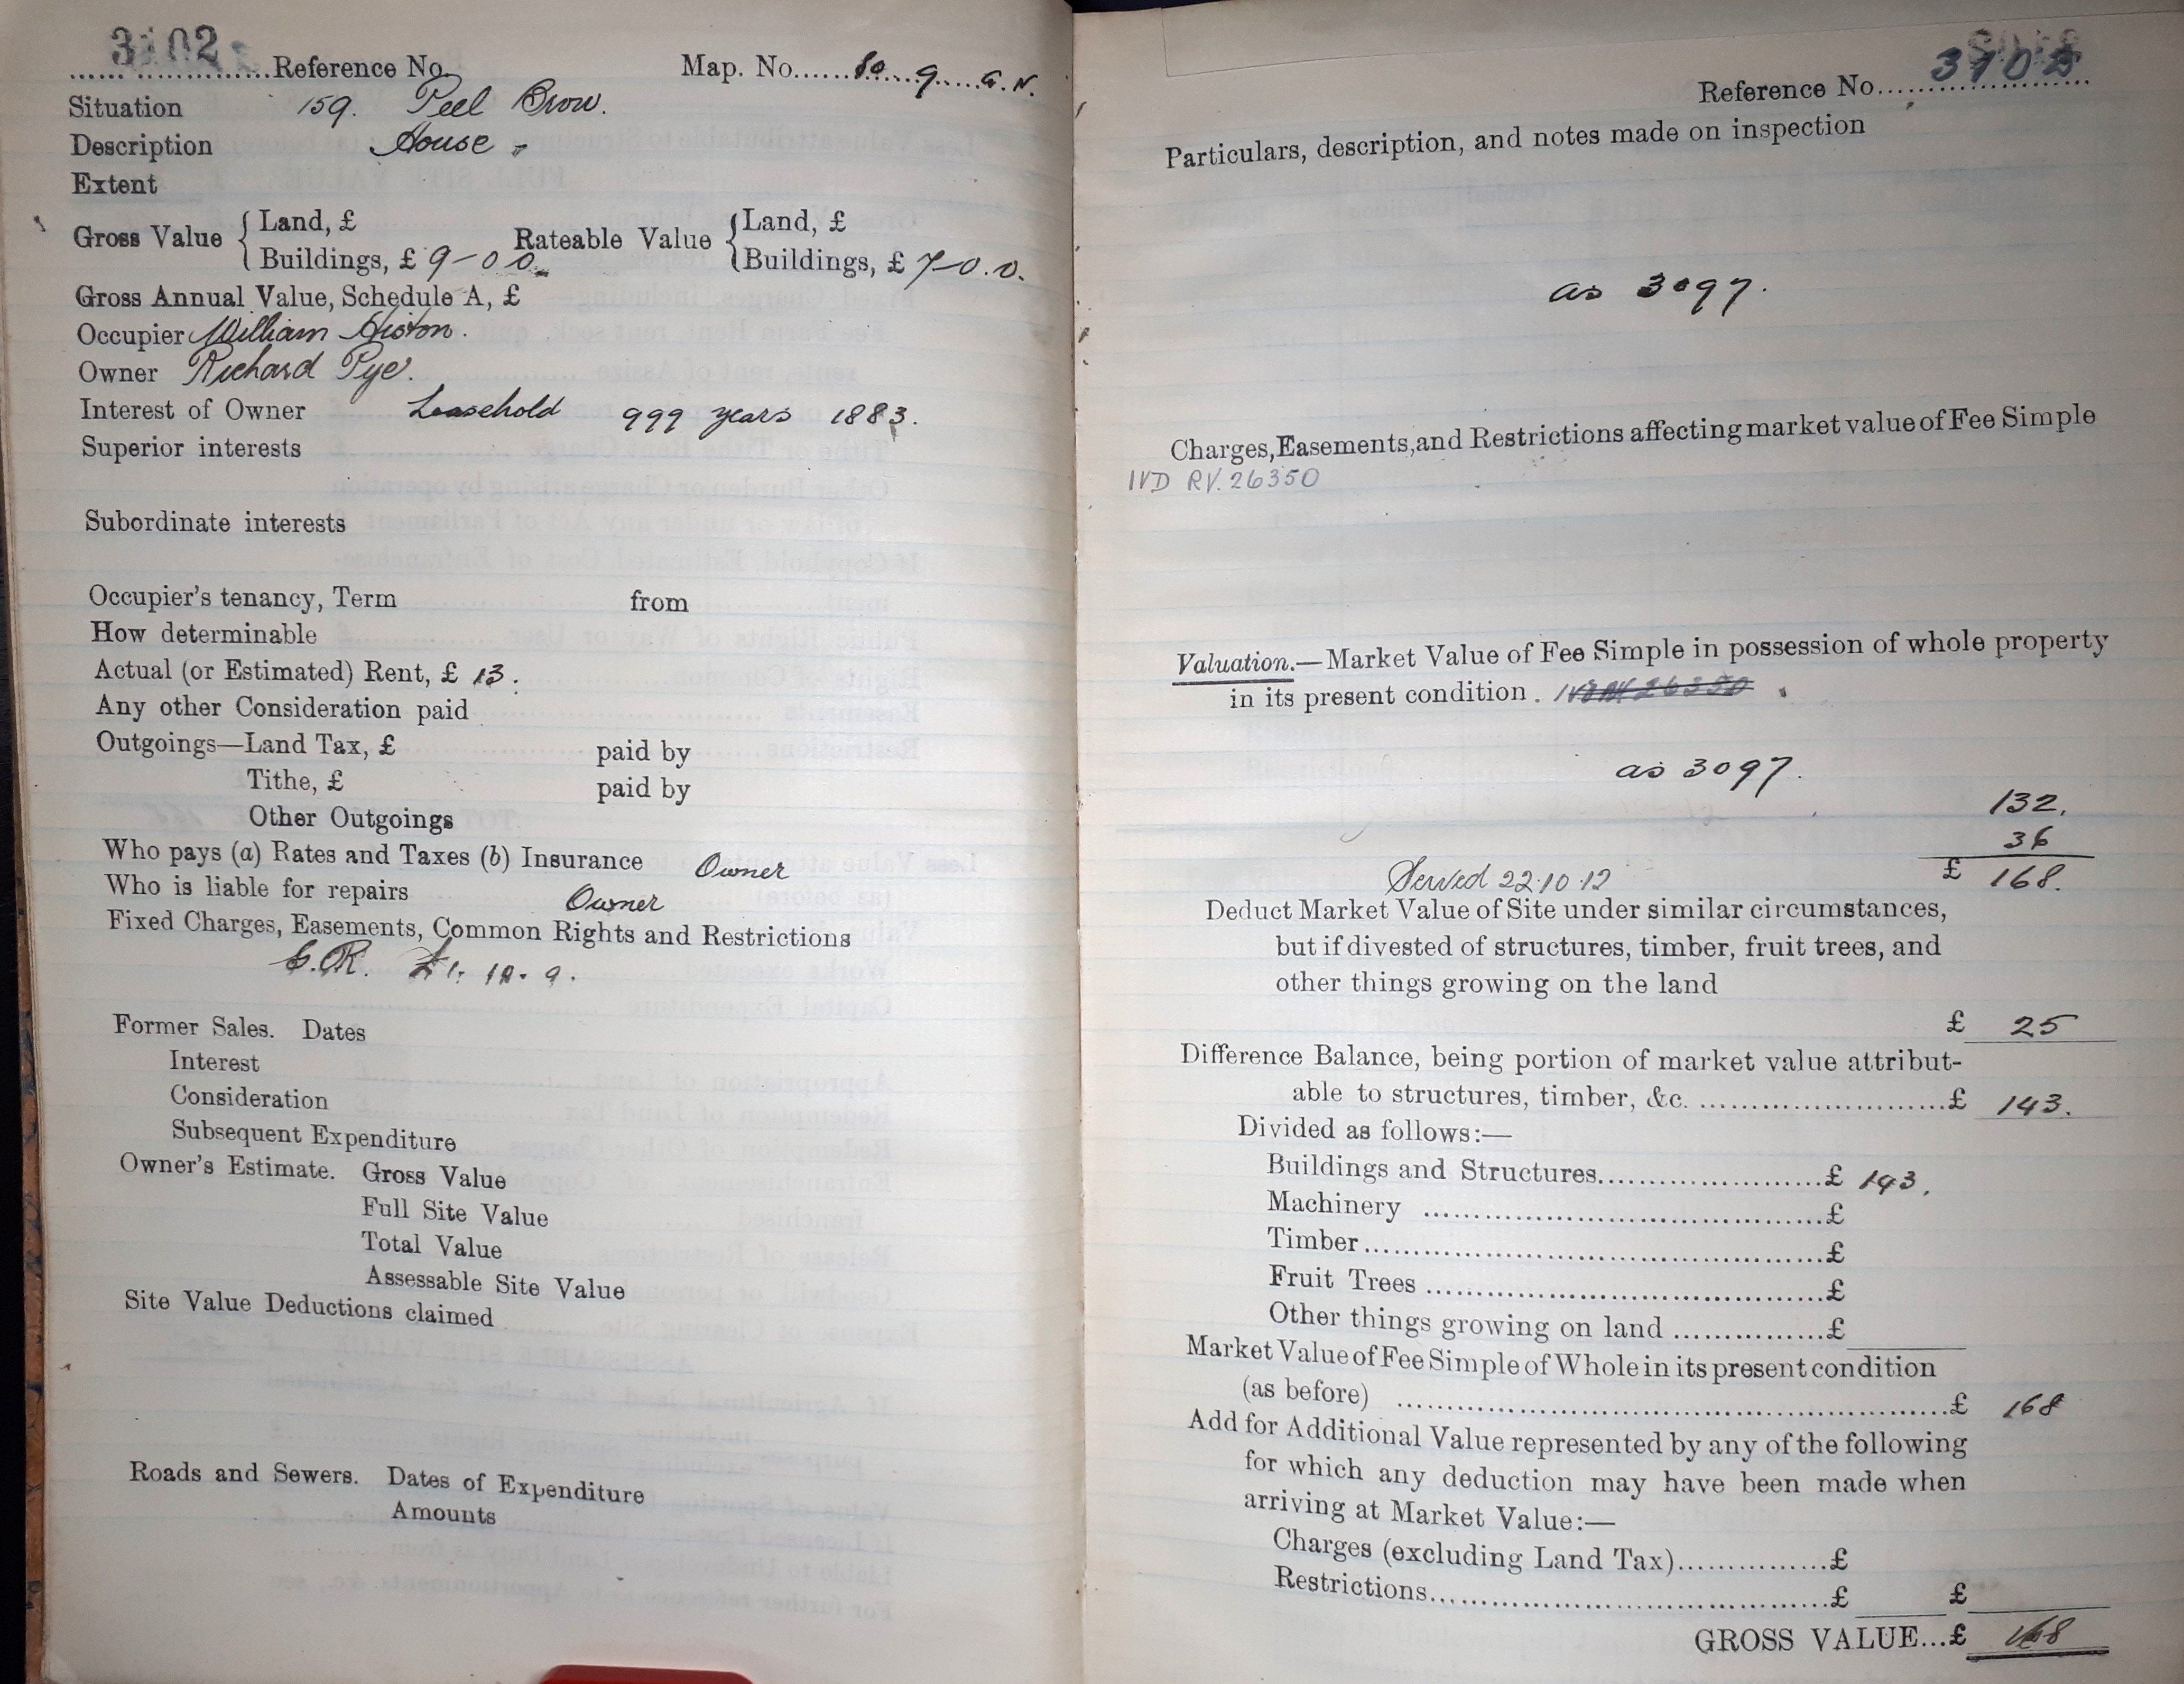 3102
Reference No. Map. No. 80. 9. G.N.
Situation 159. Peel Brow.
Description House
Extent
Gross Value { Land, £ Rateable Value { Land, £
Buildings, £ 9-0 0. Buildings, £ 7-0.0.
Gross Annual Value, Schedule A, £
Occupier William
Owner Richard Pye.
Interest of Owner Leasehold 999 years 1883.
Superior interests
Subordinate interests
Occupier's tenancy, Term from
How determinable
Actual (or Estimated) Rent, £ 13.
Any other Consideration paid
Outgoings—Land Tax, £ paid by
Tithe, £ paid by
Other Outgoings
Who pays (a) Rates and Taxes (b) Insurance Owner
Who is liable for repairs Owner
Fixed Charges, Easements, Common Rights and Restrictions
G.R. £1.
Former Sales. Dates
Interest
Consideration
Subsequent Expenditure
Owner's Estimate. Gross Value
Full Site Value
Total Value
Assessable Site Value
Site Value Deductions claimed
Roads and Sewers. Dates of Expenditure
Amounts
Reference No. 3102
Particulars, description, and notes made on inspection
as 3097.
Charges, Easements, and Restrictions affecting market value of Fee Simple
IVD RV. 26350
Valuation.—Market Value of Fee Simple in possession of whole property
in its present condition. IVD RV 26350
as 3097.
132.
36
Served 22.10.12 £ 168.
Deduct Market Value of Site under similar circumstances,
but if divested of structures, timber, fruit trees, and
other things growing on the land
£ 25
Difference Balance, being portion of market value attribut-
able to structures, timber, &c. £ 143.
Divided as follows:—
Buildings and Structures £ 143.
Machinery £
Timber £
Fruit Trees £
Other things growing on land £
Market Value of Fee Simple of Whole in its present condition
(as before) £ 168
Add for Additional Value represented by any of the following
for which any deduction may have been made when
arriving at Market Value:—
Charges (excluding Land Tax) £
Restrictions £ £
GROSS VALUE...£ 168